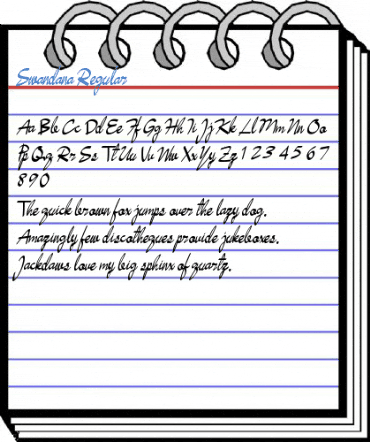 Swandana Regular
Aa Bb Cc Dd Ee Ff Gg Hh Ii Jj Kk Ll Mm Nn Oo
Pp Qq Rr Ss Tt Uu Vv Ww Xx Yy Zz 1 2 3 4 5 6 7
8 9 0
The quick brown fox jumps over the lazy dog.
Amazingly few discotheques provide jukeboxes.
Jackdaws love my big sphinx of quartz.